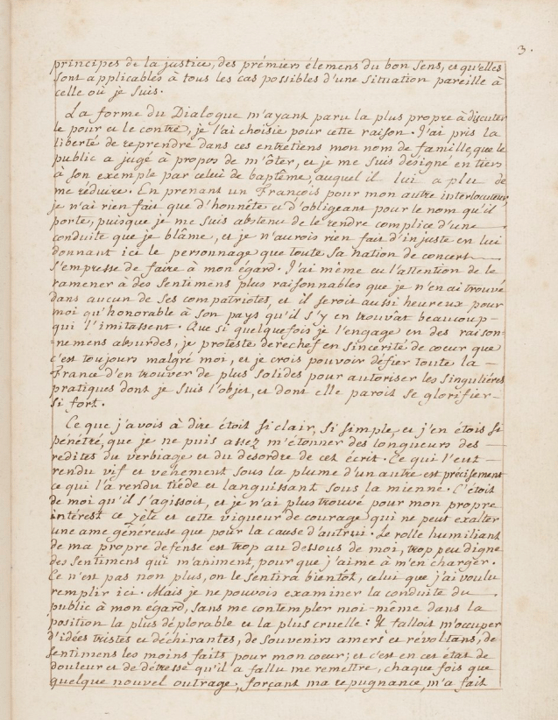 3.
principes de la justice, des prémiers élemens du bon sens, et qu'elles
sont applicables à tous les cas possibles d'une situation pareille à
celle où je suis.
La forme du Dialogue m'ayant paru la plus propre à discuter
le pour et le contre, je l'ai choisie pour cette raison. J'ai pris la
liberté de reprendre dans ces entretiens mon nom de famille, que le
public a jugé à propos de m'ôter, et je me suis désigné en tiers
à son exemple par celui de baptême, auquel il lui a plu de
me réduire. En prenant un François pour mon autre interlocuteur,
je n'ai rien fait que d'honnête et d'obligeant pour le nom qu'il
porte, puisque je me suis abstenu de le rendre complice d'une
conduite que je blâme, et je n'aurois rien fait d'injuste en lui
donnant ici le personnage que toute sa nation de concert
s'empresse de faire à mon égard. J'ai même eu l'attention de le
ramener à des sentimens plus raisonnables que je n'en ai trouvé
dans aucun de ses compatriotes, et il seroit aussi heureux pour
moi qu'honorable à son pays qu'il s'y en trouvat beaucoup
qui l'imitassent. Que si quelquefois je l'engage en des raison-
nemens absurdes, je proteste derechef en sincérité de cœur que
c'est toujours malgré moi, et je crois pouvoir défier toute la
France d'en trouver de plus solides pour autoriser les singuliéres
pratiques dont je suis l'objet, et dont elle parois se glorifier
si fort.
Ce que j'avois à dire étoit si clair, si simple, et j'en étois si
pénétré, que je ne puis assez m'étonner des longueurs des
redites du verbiage et du desordre de cet écrit. Ce qui l'eut
rendu vif et véhément sous la plume d'un autre est précisement
ce qui l'a rendu tiéde et languissant sous la mienne. C'étoit
de moi qu'il s'agissoit, et je n'ai plus trouvé pour mon propre
intérest ce zéle et cette vigueur de courage qui ne peut exalter
une ame généreuse que pour la cause d'autrui. Le rolle humiliant
de ma propre défense est trop au dessous de moi, trop peu digne
des sentimens qui m'animent, pour que j'aime à m'en charger.
Ce n'est pas non plus, on le sentira bientot, celui que j'ai voulu
remplir ici. Mais je ne pouvois examiner la conduite du
public à mon égard, sans me contempler moi-même dans la
position la plus déplorable et la plus cruelle: Il falloit m'occuper
d'idées tristes et déchirantes, de souvenirs amers et révoltans, de
sentimens les moins faits pour mon cœur; et c'est en cet état de
douleur et de détresse qu'il a fallu me remettre, chaque fois que
quelque nouvel outrage, forçant ma repugnance, m'a fait